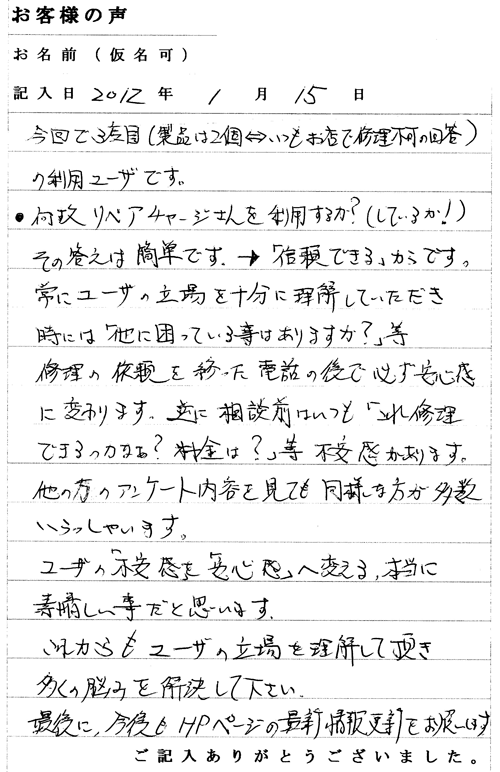 お客様の声
お名前（仮名可）
記入日 2012 年 1 月 15 日
今回で3度目(製品は2個⇔いつもお店で修理不可の回答)
の利用ユーザです。
●何故リペアチャージさんを利用するか?(しているか!)
その答えは簡単です.→「信頼できる」からです。
常にユーザの立場を十分に理解していただき
時には「他に困っている事はありますか?」等
修理の依頼を移った電話の後で必ず安心感
に変わります。逆に相談前はいつも「これ修理
できるのかなぁ?料金は?」等不安感があります。
他の方のアンケート内容を見ても同様な方が多数
いらっしゃいます。
ユーザの「不安感を「安心感」へ変える,本当に
素晴しい事だと思います.
これからもユーザの立場を理解して頂き
多くの悩みを解決して下さい.
最後に,今後もHPページの最新情報更新をお願います
ご記入ありがとうございました。